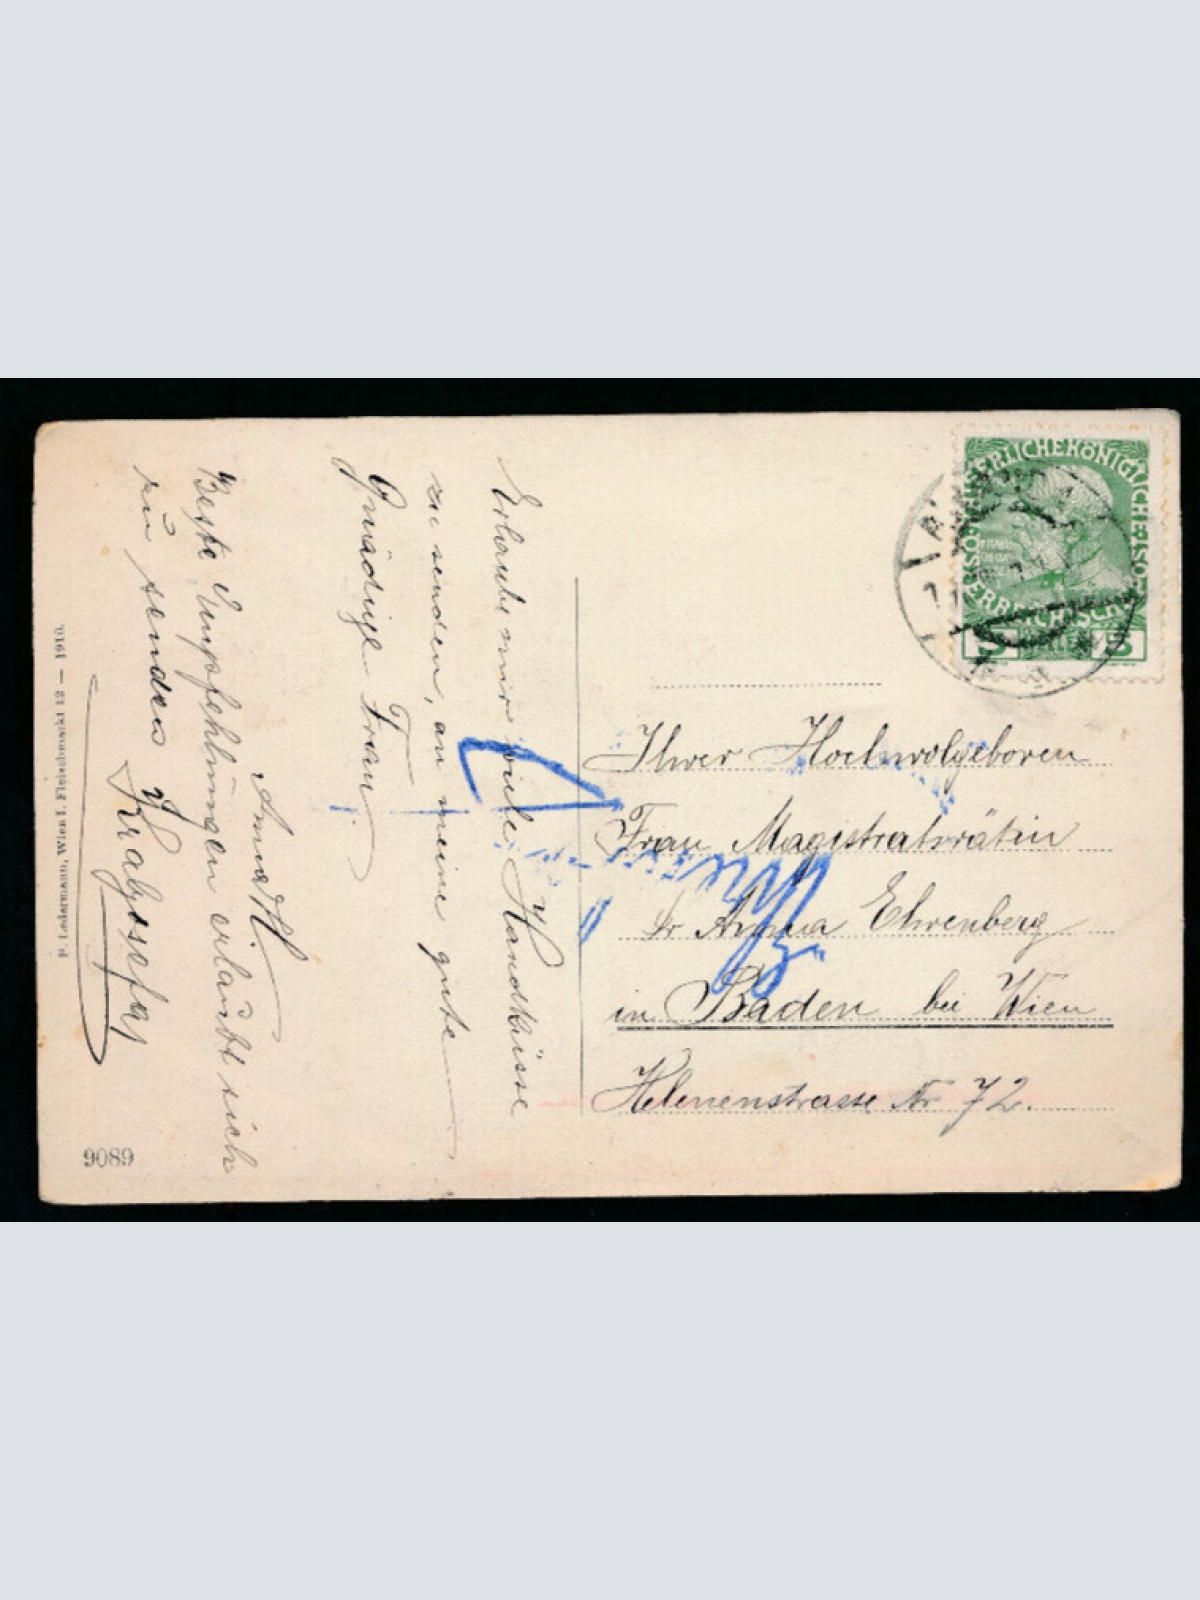 Erlaube mir viele Handküsse
zu senden, an meine gute
Gnädige Frau.
Anna H
Beste Empfehlungen erlaubt sich
zu senden
F. Ledermann, Wien I. Fleischmarkt 12 — 1910.
9089
KAISERLICHEKÖNIGLICHE ÖSTERREICHISCHE
5 5
Ihrer Hochwolgeboren
Frau Magistratsrätin
Anna Ehrenberg
in Baden bei Wien
Helenenstrasse Nr 72.